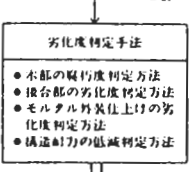 劣化度判定手法
● 木部の腐朽度判定方法
● 接合部の劣化度判定方法
● モルタル外装仕上げの劣
化度判定方法
● 構造耐力の低減判定方法